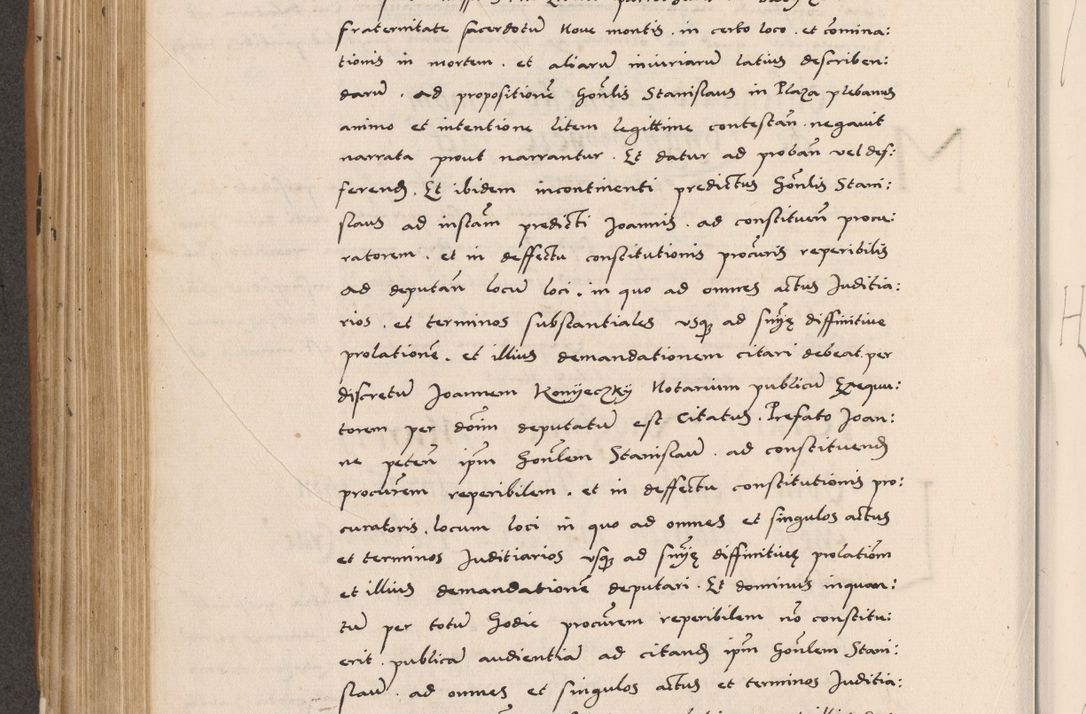 fraternitate sacerdotũ Nove montis . in certo loco . et cõmina:
tionis in mortem . et aliarũ iniuriarũ latius describen:
darũ . ad propositionẽ Honlis Stanislaus in Plaza plebanus
animo et intentione litem legittime contestan̄ . negavit
narrata prout narrantur . Et datur ad proban̄ vel def:
ferend̄ . Et ibidem incontinenti predictus Honlis Stani:
slaus ad instam̄ predicti Joannis . ad constituen̄ procu:
ratorem . et in deffectu constitutionis procuris reperibilis
ad deputan̄ locũ loci . in quo ad omnes actus Juditia:
rios . et terminos substantiales usq ad sniȩ diffinitive
prolationẽ . et illius demandationem citari debeat . per
discretũ Joannem Konyeczky Notarium publicũ Exequu:
torem per dom̄ deputatũ est Citatus . Prefato Joan:
ne peten̄ ipm̄ Honlem Stanislaũ . ad constituend̄
procurem reperibilem . et in deffectu constitutionis pro:
curatoris . locum loci in quo ad omnes et singulos actus
et terminos Juditiarios usq ad sniȩ diffinitivȩ prolationem
et illius demandationẽ deputari . Et dominus inquan:
tũ per totũ hodie procurem reperibilem nõ constitu:
erit . publicã audientiã ad citand̄ ipm̄ Honlem Stani:
slaũ . ad omnes et singulos actus et terminos Juditia: